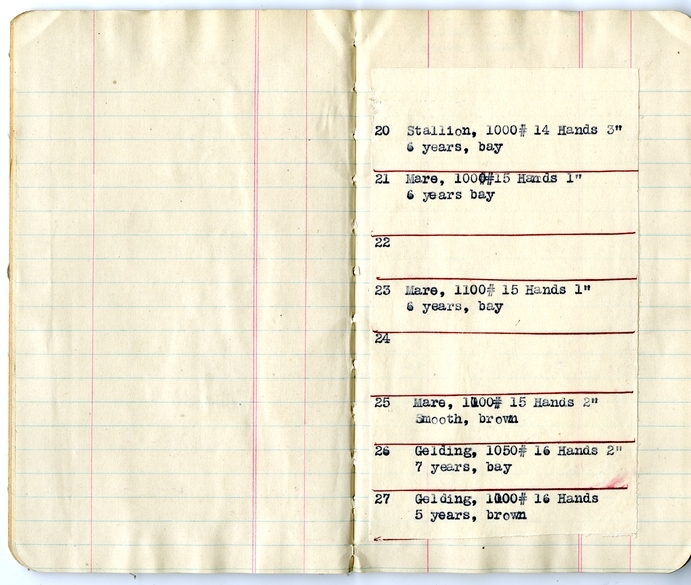 20 Stallion, 1000# 14 Hands 3"
6 years, bay
21 Mare, 1000#15 Hands 1"
6 years bay
22
23 Mare, 1100# 15 Hands 1"
6 years, bay
24
25 Mare, 1100# 15 Hands 2"
Smooth, brown
26 Gelding, 1050# 16 Hands 2"
7 years, bay
27 Gelding, 1000# 16 Hands
5 years, brown